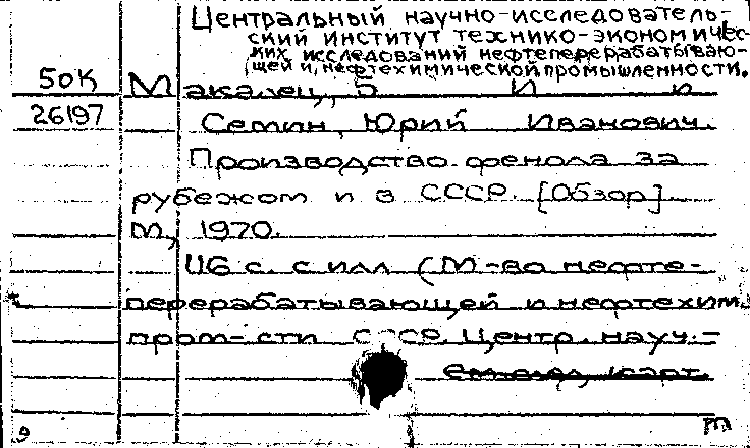 Центральный научно-исследователь-
ский институт технико-экономичес-
ких исследований нефтеперерабатываю-
щей и нефтехимической промышленности.
50К Макалец, Б И и
26197 Семин, Юрий Иванович.
Производство фенола за
рубежом и в СССР. [Обзор]
М, 1970.
116 с. с илл (М-во нефте-
перерабатывающей и нефтехим.
пром-сти СССР. Центр. науч.-
см. след. карт.
э т